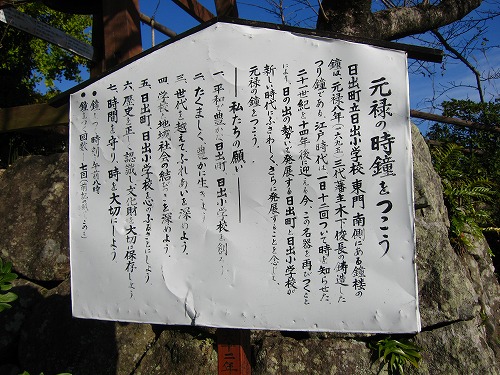 元禄の時鐘をつこう
日出町立日出小学校東門南側にある鐘楼の
鐘は、元禄八年(一六九五)三代藩主木下俊長の鋳造した
つり鐘である。江戸時代は一日十二回ついて時を知らせた。
二十一世紀を十四年後に迎える今、この名器を再びつくこと
により、日の出の勢いで発展する日出町と日出小学校が
新しい時代にふさわしく、さらに発展することを念じて、
元禄の鐘をつこう。
――私たちの願い――
一、平和で豊かな日出町、日出小学校を創ろう
二、たくましく、心豊かに生きよう
三、世代を越えてふれあいを深めよう。
四、学校、地域社会の結びつきを深めよう。
五、日出町、日出小学校を心のふるさとにしよう
六、歴史を正しく認識し、文化財を大切に保存しよう
七、時間を守り、時を大切にしよう
●鐘をつく時刻 午前八時
●鐘をつく回数 七回
二年